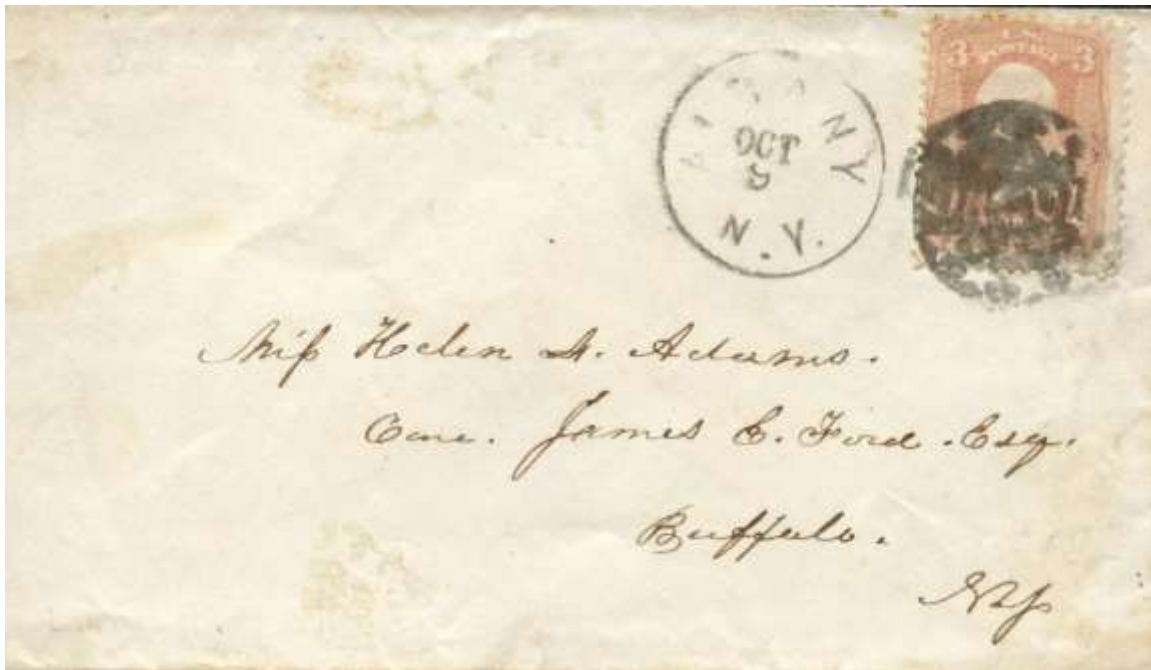 3 U.S. POSTAGE 3
ALBANY
OCT
9
N.Y.
Miſs Helen A. Adams.
Care. James E. Ford. Esq.
Buffalo.
NY